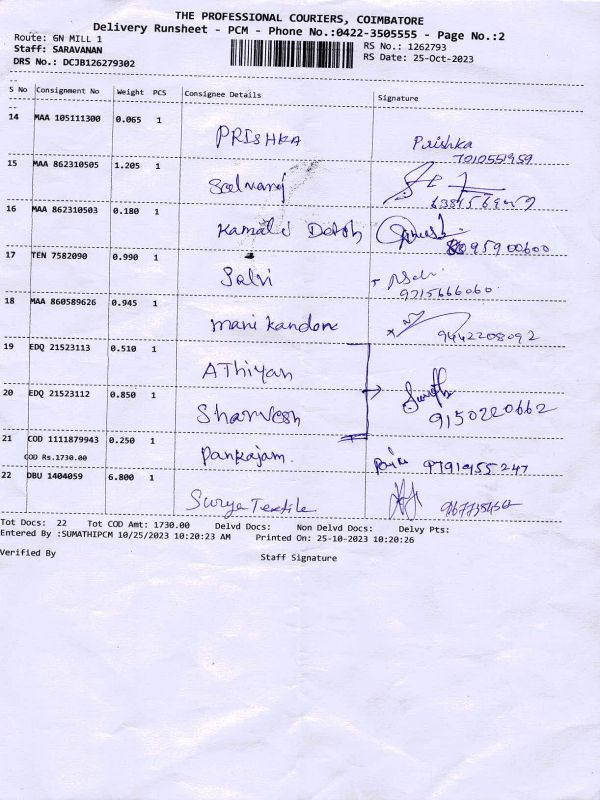 THE PROFESSIONAL COURIERS, COIMBATORE
Delivery Runsheet - PCM - Phone No.:0422-3505555 - Page No.:2
Route: GN MILL 1
RS No.: 1262793
Staff: SARAVANAN
RS Date: 25-Oct-2023
DRS No.: DCJB126279302
S No Consignment No Weight PCS Consignee Details Signature
14 MAA 105111300 0.065 1 PRISHKA Prishka
7010551959
15 MAA 862310505 1.205 1
16 MAA 862310503 0.180 1 Kamal
95900600
17 TEN 7582090 0.990 1 Selvi
9715666060
18 MAA 860589626 0.945 1 mani kandone
9442208092
19 EDQ 21523113 0.510 1 AThiyan
20 EDQ 21523112 0.850 1 Sharvesh
9150220662
21 COD 1111879943 0.250 1 Pankajam. 9791955247
COD Rs.1730.00
22 DBU 1404059 6.800 1 Surya Textile
Tot Docs: 22 Tot COD Amt: 1730.00 Delvd Docs: Non Delvd Docs: Delvy Pts:
Entered By :SUMATHIPCM 10/25/2023 10:20:23 AM Printed On: 25-10-2023 10:20:26
Verified By Staff Signature